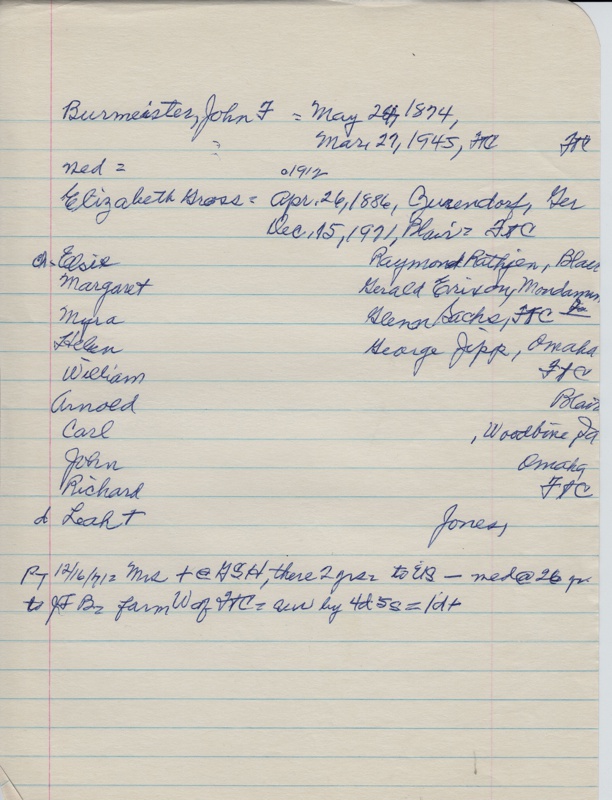 Burmeister, John F = May 24, 1874,
= Mar. 27, 1945, FtC FtC
med = 1912
Elizabeth Gross = Apr. 26, 1886, Ger
Dec. 15, 1971, Blair = FtC
ch. Elsie Raymond Rathjen, Blair
Margaret Gerald Erixon, Mondamin, Ia
Myra Glenn Sachs, FtC
Helen George Jipp, Omaha
William FtC
Arnold Blair
Carl , Woodbine Ia
John Omaha
Richard FtC
d Leah † Jones,
PT 12/16/71 = Mrs † @ GSH, there 2 yrs = to US — med @ 26 yr
to JFB = farm W of FtC = sur by 4d 5s = 1d†